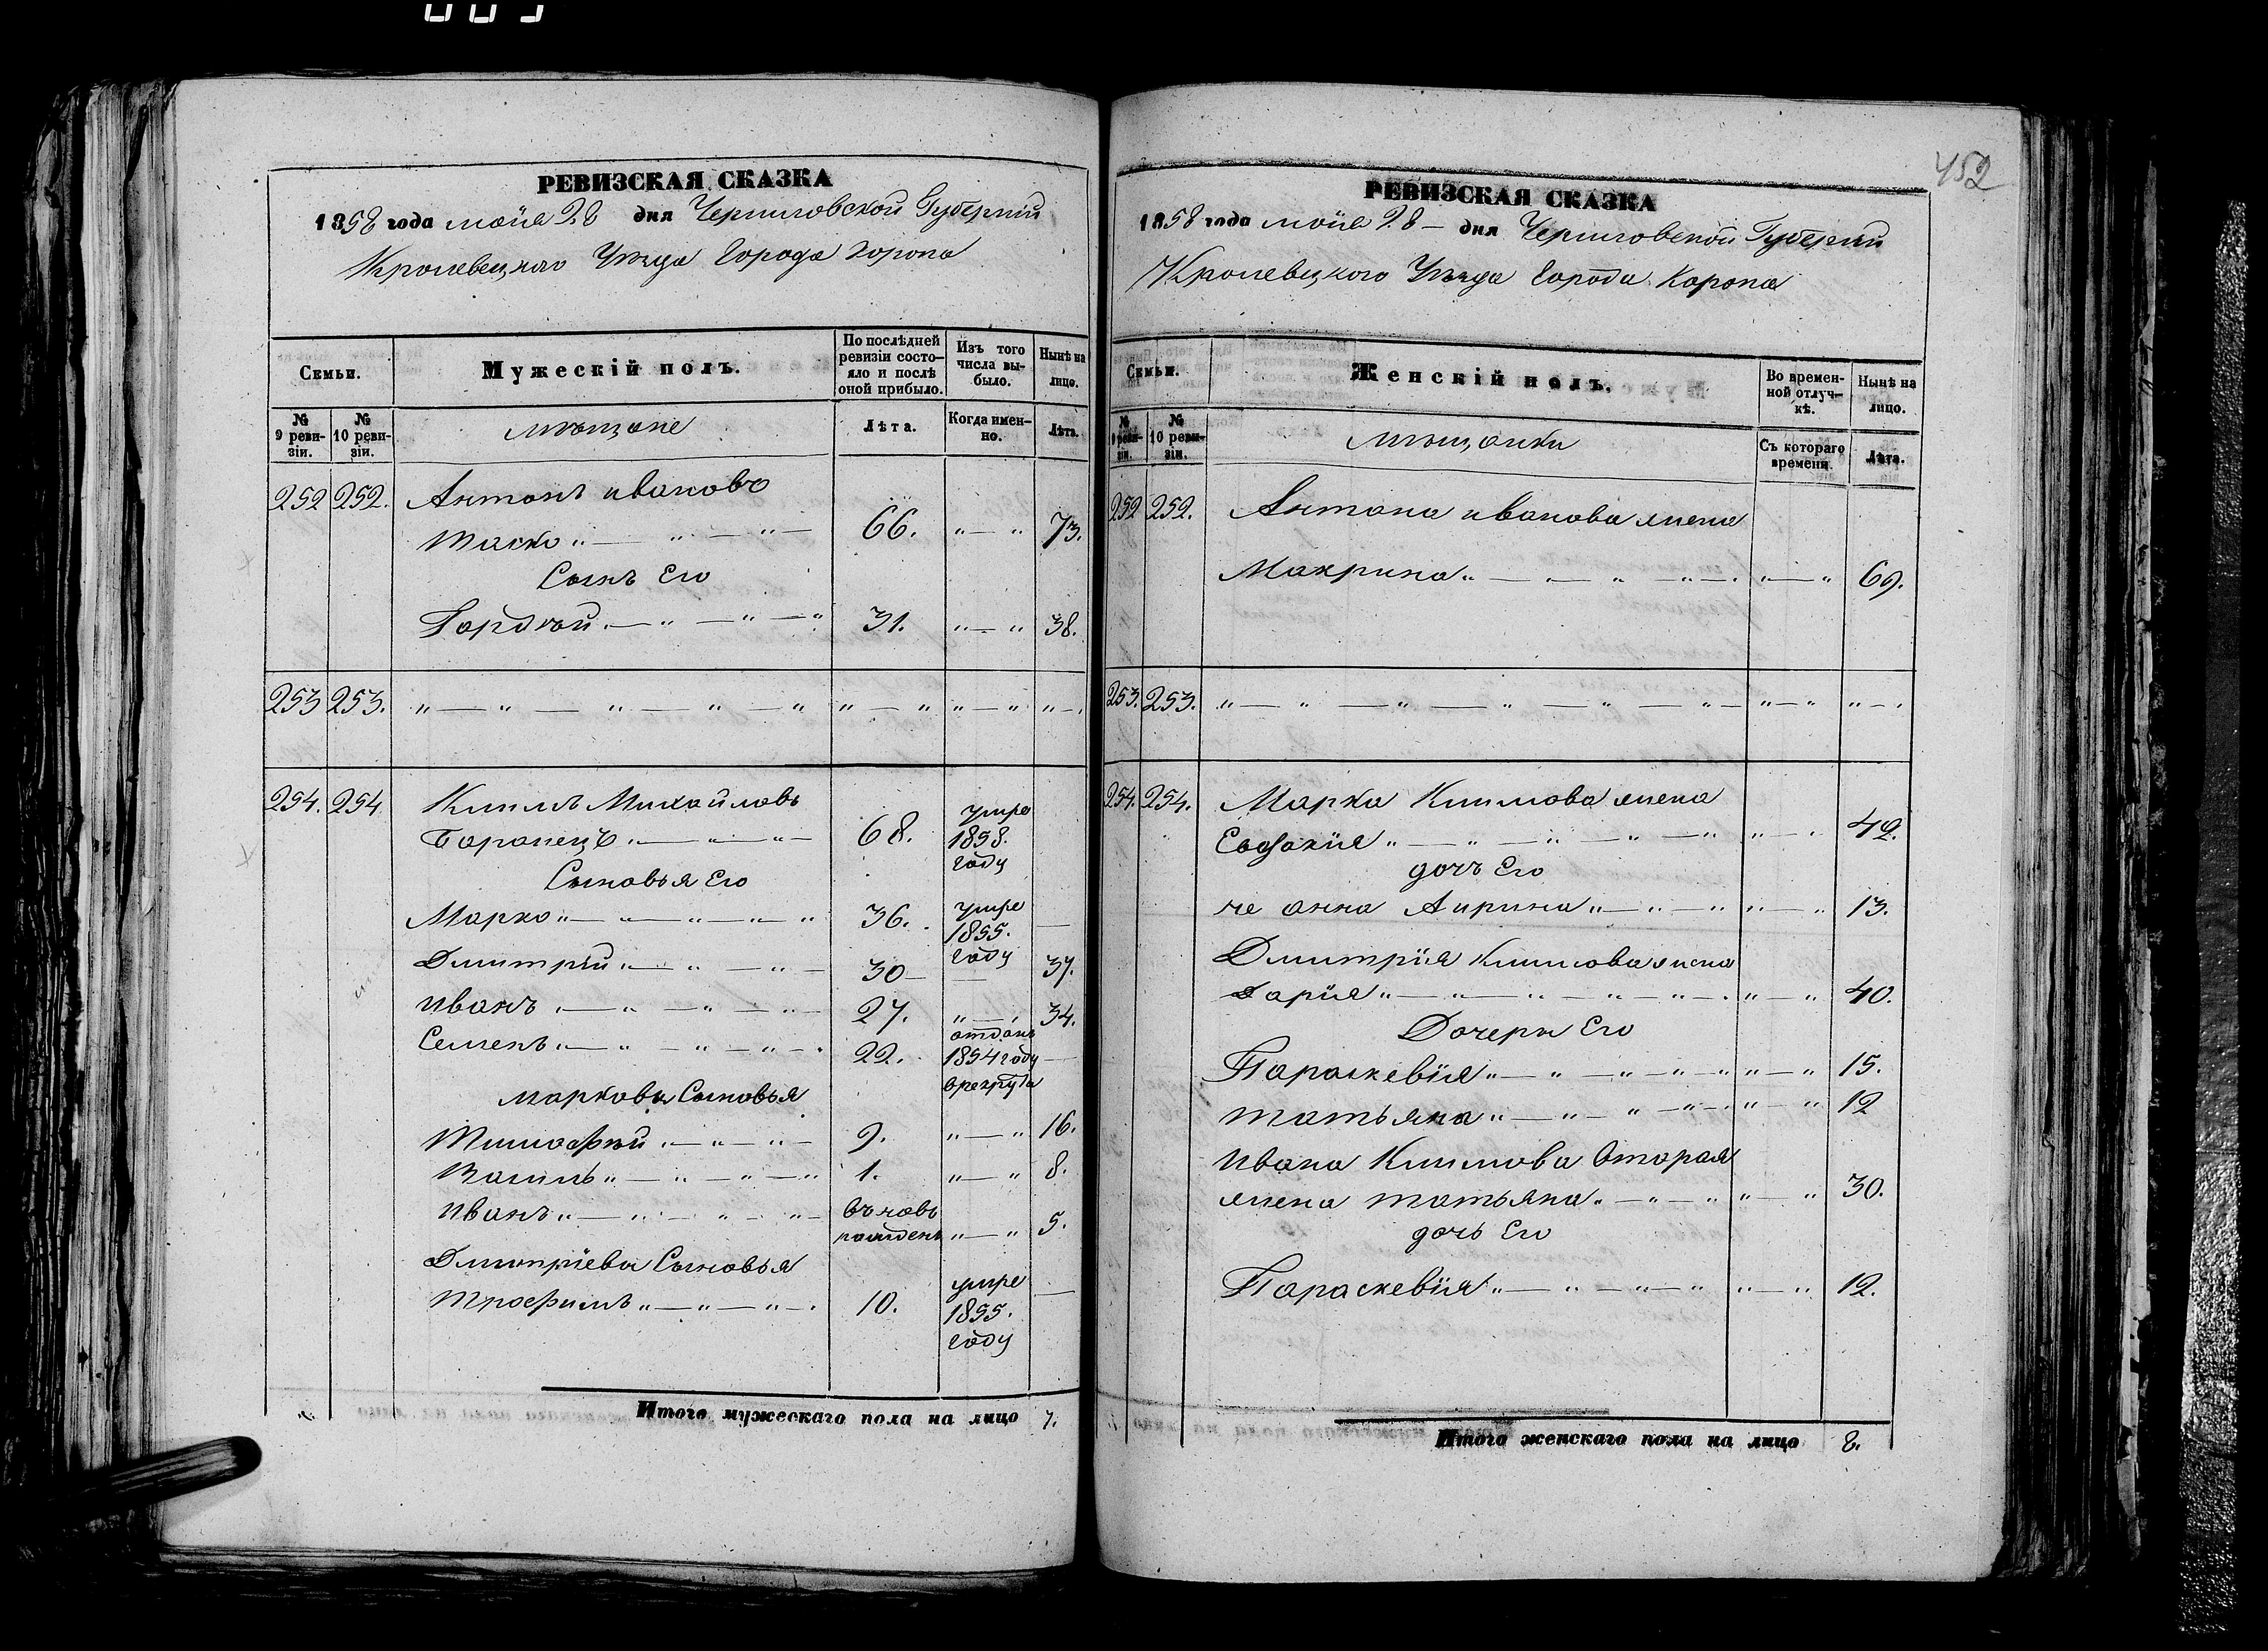 452
РЕВИЗСКАЯ СКАЗКА
1858 года маія 28 дня Черниговской Губерніи
Кролевецкого Уѣзда Города Коропа
Семьи.
Мужескій полъ.
По послѣдней ревизіи состояло и послѣ оной прибыло.
Изъ того числа выбыло.
Нынѣ на лицо.
№ 9 ревизіи.
№ 10 ревизіи.
мѣщане
Лѣта.
Когда именно.
Лѣта.
252 252. Антонъ ивановъ
Таско 66. 73.
Сынъ Его
Гордѣй 31. 38.
253 253.
254. 254 Климъ Михайловъ
Баранецъ 68. умре 1858. году
Сыновья Его
Марко 36. умре 1855. году
Дмитрій 30 37.
иванъ 27. 34.
Семенъ 22. отданъ 1854 году врекрута
марковы Сыновья
Тимофѣй 9. 16.
Василь 1. 8.
иванъ вьновь рожденъ 5.
Дмитріевы Сыновья
трофимъ 10. умре 1855. году
Итого мужескаго пола на лицо 7.
РЕВИЗСКАЯ СКАЗКА
1858 года маія 28 дня Черниговской Губерніи
Кролевецкого Уѣзда Города Коропа
Семьи.
Женскій полъ.
Во временной отлучкѣ.
Нынѣ на лицо.
№ 9 ревизіи.
№ 10 ревизіи.
мѣщанки
Съ котораго времени.
Лѣта.
252 252. Антона иванова жена
Макрина 69.
253. 253.
254. 254. Марка Климова жена
Евдокія 42.
дочъ Его
Аирина 13.
Дмитрія Климова жена
Дарія 40.
Дочери Его
Параскевія 15.
татьяна 12
ивана Климова вторая
жена татьяна 30.
дочь Его
Параскевія 12.
Итого женскаго пола на лицо 8.